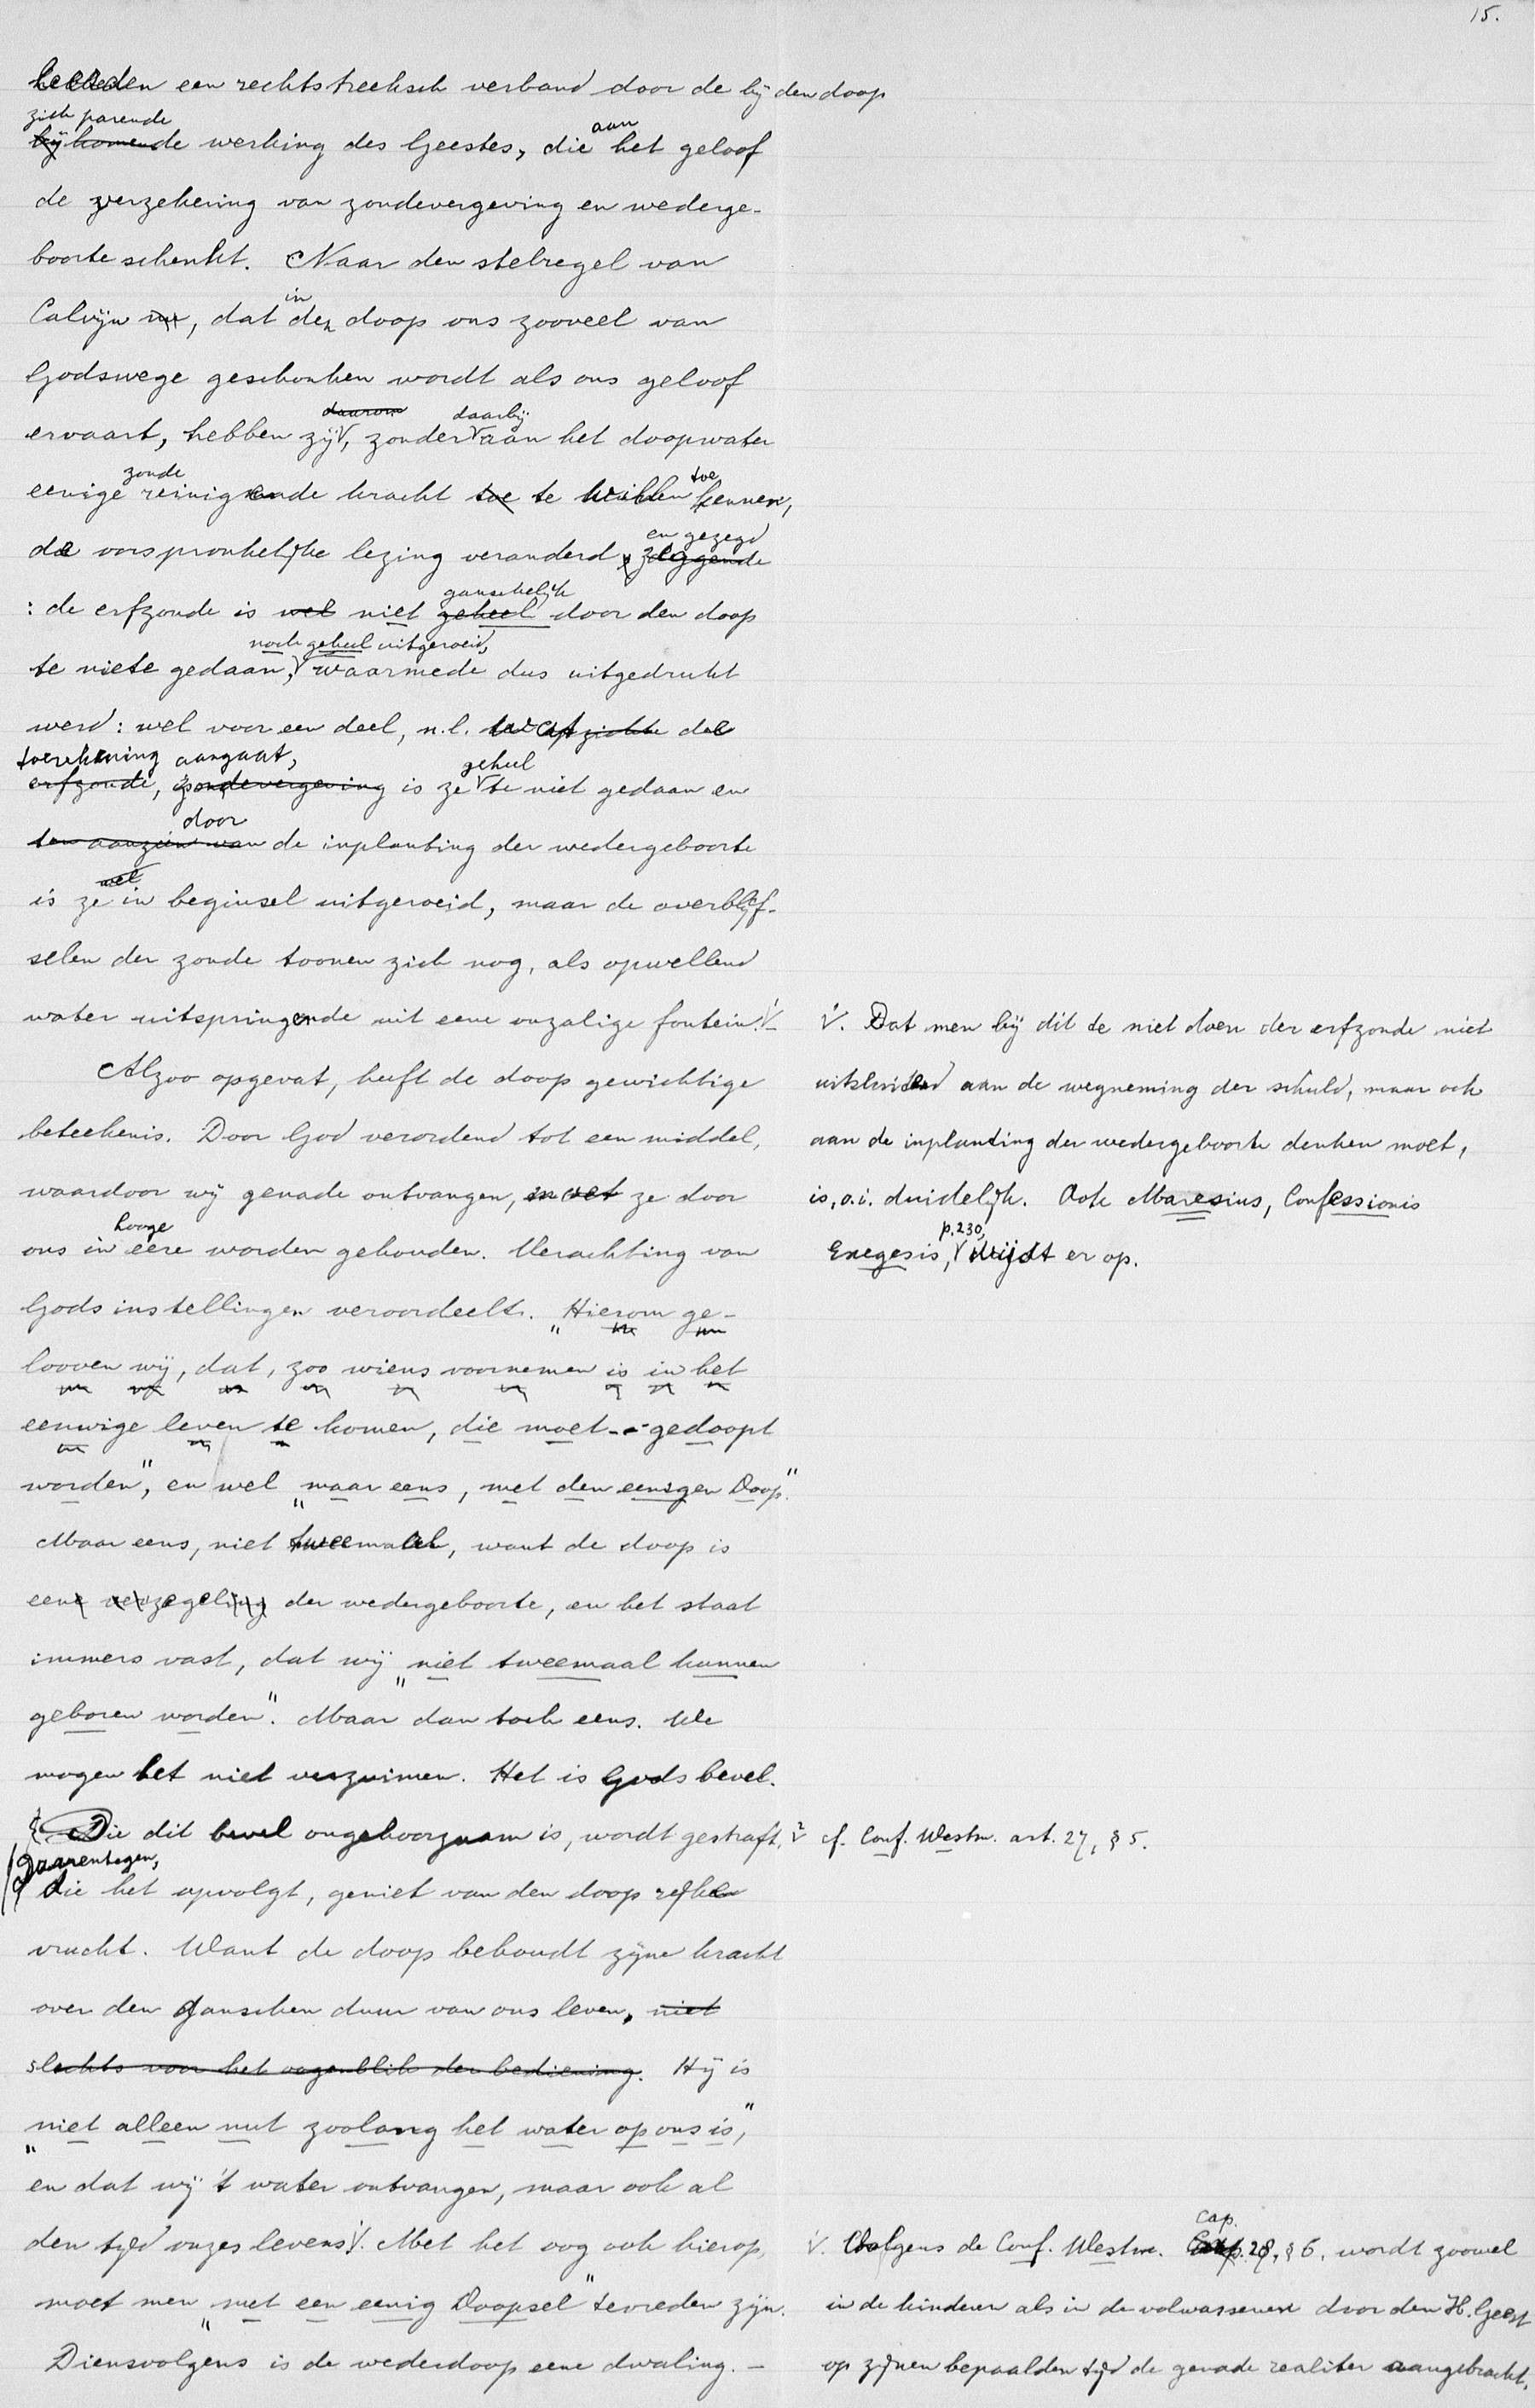 15.
hebben een rechtstreeksch verband door de bij den doop
zich parende
bijkomende werking des Geestes, die aan het geloof
de verzekering van zondevergeving en wederge-
boorte schenkt. Naar den stelregel van
Calvijn, dat in den doop ons zooveel van
Godswege geschonken wordt als ons geloof
ervaart, hebben zij daarom, zonder daarbij aan het doopwater
eenige zonde reinigende kracht toe te willen toe kennen,
de oorspronkelijke lezing veranderd en gezegd zeggende
: de erfzonde is wel niet ganschelijk geheel door den doop
te niete gedaan, noch geheel uitgeroeid, waarmede dus uitgedrukt
werd: wel voor een deel, n.l. wat de
toerekening aangaat,
erfzonde, zondevergeving is ze geheel te niet gedaan en
ten aanzien van door de inplanting der wedergeboorte
is ze wel in beginsel uitgeroeid, maar de overblijf-
selen der zonde toonen zich nog, als opwellend
water uitspringende uit eene onzalige fontein.√
Alzoo opgevat, heeft de doop gewichtige
beteekenis. Door God verordend tot een middel,
waardoor wij genade ontvangen, moet ze door
ons in hooge eere worden gehouden. Verachting van
Gods instellingen veroordeelt. „Hierom ge-
looven wij, dat, zoo wiens voornemen is in het
eeuwige leven te komen, die moet -- gedoopt
worden", en wel „maar eens, met den eenigen Doop."
Maar eens, niet tweemaal, want de doop is
eene verzegeling der wedergeboorte, en het staat
immers vast, dat wij „niet tweemaal kunnen
geboren worden". Maar dan toch eens. We
mogen het niet verzuimen. Het is Gods bevel.
Die dit bevel ongehoorzaam is, wordt gestraft.√²
Daarentegen,
die het opvolgt, geniet van den doop rijke
vrucht. Want de doop behoudt zijne kracht
over den ganschen duur van ons leven, niet
slechts voor het oogenblik der bediening. Hij is
„niet alleen nut zoolang het water op ons is,"
en dat wij 't water ontvangen, maar ook al
den tijd onzes levens√. Met het oog ook hierop,
moet men „met een eenig Doopsel" tevreden zijn.
Diensvolgens is de wederdoop eene dwaling. –
√. Dat men bij dit te niet doen der erfzonde niet
uitsluitend aan de wegneming der schuld, maar ook
aan de inplanting der wedergeboorte denken moet,
is, o.i. duidelijk. Ook Maresius, Confessionis
Exegesis, p. 230, wijst er op.
cf. Conf. Westm. art. 27, § 5.
√. Volgens de Conf. Westm. Cap. 28, § 6, wordt zoowel
in de kinderen als in de volwassenen door den H. Geest
op zijnen bepaalden tijd de genade realiter aangebracht.